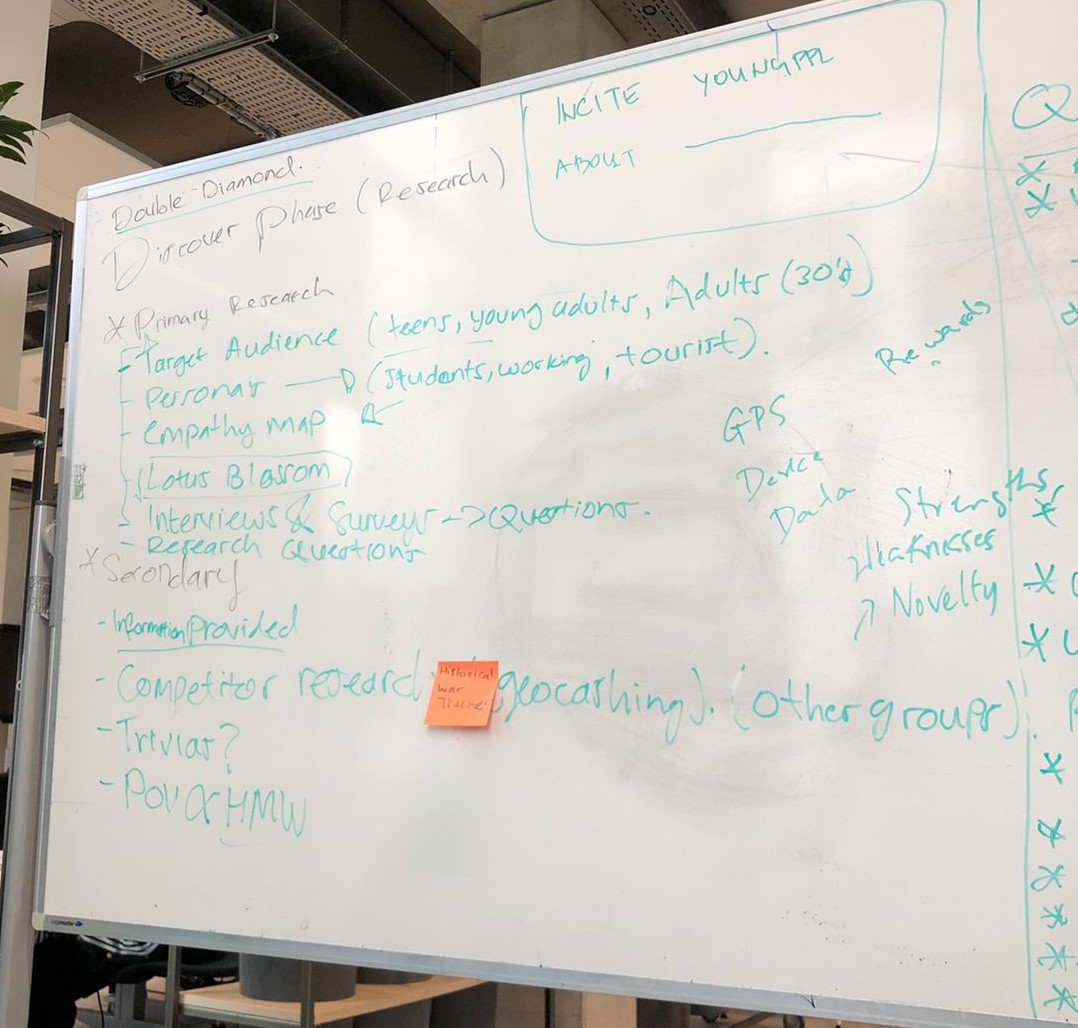 Double Diamond.
Discover Phase (Research)
* Primary Research
- Target Audience (teens, young adults, Adults (30's)
- Personas → (students, working, tourist).
- Empathy map
- Lotus Blossom
- Interviews & Surveys -> Questions.
- Research Questions
* Secondary
- Information Provided
- Competitor research (geocashing). (other groups).
- Trivias?
- POV & HMW
Historical
war
INCITE YOUNG PPL
ABOUT
Rewards
GPS
Device
Data
Strengths
Weaknesses
Novelty
Q